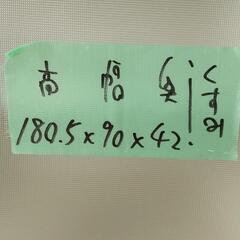 高 幅 奥
180.5×90×42.
くすみ